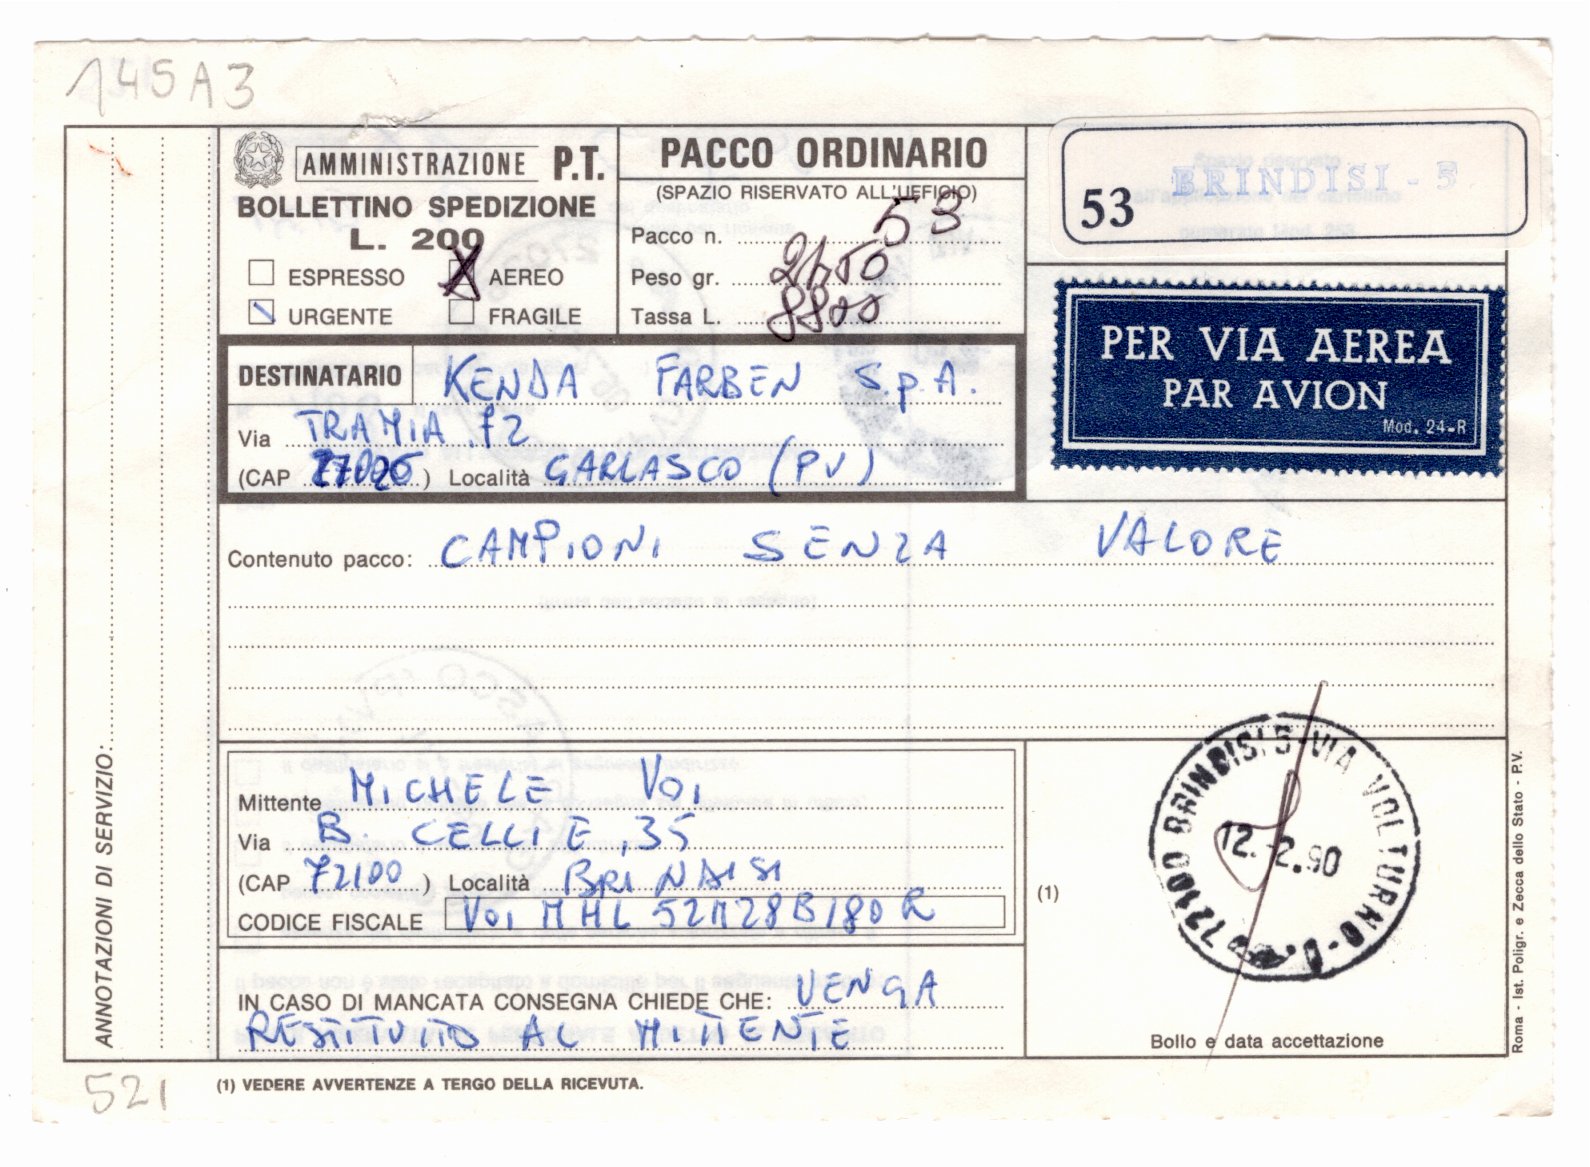 145A3
AMMINISTRAZIONE P.T.
BOLLETTINO SPEDIZIONE
L. 200
ESPRESSO AEREO
URGENTE FRAGILE
PACCO ORDINARIO
(SPAZIO RISERVATO ALL'UFFICIO)
Pacco n. 53
Peso gr.
Tassa L. 8800
53 BRINDISI - 5
PER VIA AEREA
PAR AVION
Mod. 24-R
DESTINATARIO KENDA FARBEN S.p.A.
Via TRAMIA 72
(CAP ) Località GARLASCO (PV)
Contenuto pacco: CAMPIONI SENZA VALORE
Mittente MICHELE VOI
Via B. CELLIE, 35
(CAP 72100) Località BRINDISI
CODICE FISCALE VOI MHL 52M28B180R
IN CASO DI MANCATA CONSEGNA CHIEDE CHE: VENGA
RESTITUITO AL MITTENTE
72100 BRINDISI 5 - VIA VOLTURNO
12.-2.90
(1)
Bollo e data accettazione
ANNOTAZIONI DI SERVIZIO:
Roma - Ist. Poligr. e Zecca dello Stato - P.V.
521
(1) VEDERE AVVERTENZE A TERGO DELLA RICEVUTA.